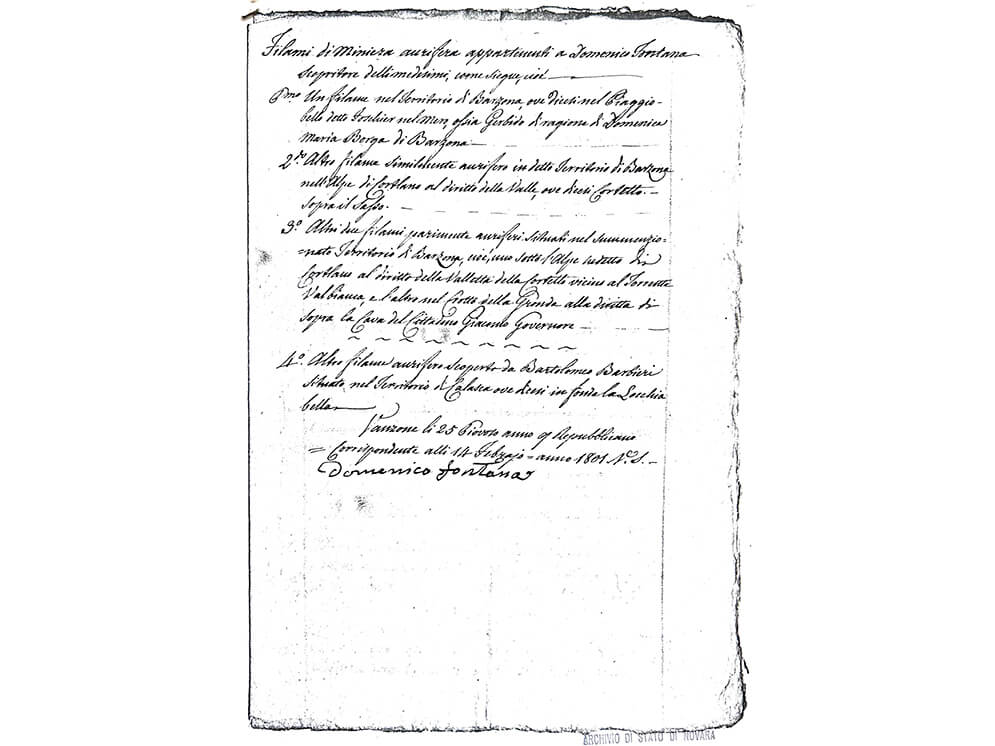 Filami di Miniera aurifera appartenenti a Domenico Fontana
scopritore delli medesimi, come siegue, cioè
Pmo Un filame nel Territorio di Barzona, ove dicesi nel Piaggio=
bello detto nel ossia Gerbido di ragione di Domenico
Maria Borga di Barzona
2do Altro filame similmente aurifero in detto Territorio di Barzona
nell'Alpe di Cortlano al diritto della Valle, ove dicesi Cortetto
sopra il Sasso.
3o Altri due filami parimente auriferi situati nel summenzio=
=nato Territorio di Barzona, cioè, uno sotto l'Alpe sudetto di
Cortlano al diritto della Valletta della Cortetto vicino al Torrente
Valbianca, e l'altro nel Crotto della Gronda alla diritta di
sopra la Cava del Cittadino Giacomo Governore
4o Altro filame aurifero scoperto da Bartolomeo Barbieri
situato nel Territorio di Calasca ove dicesi in fondo la
bella
Vanzone li 25 Piovoso anno 9 Repubblicano
= Corrispondente alli 14 Febrajo = anno 1801 N. S. =
Domenico fontana
ARCHIVIO DI STATO DI NOVARA